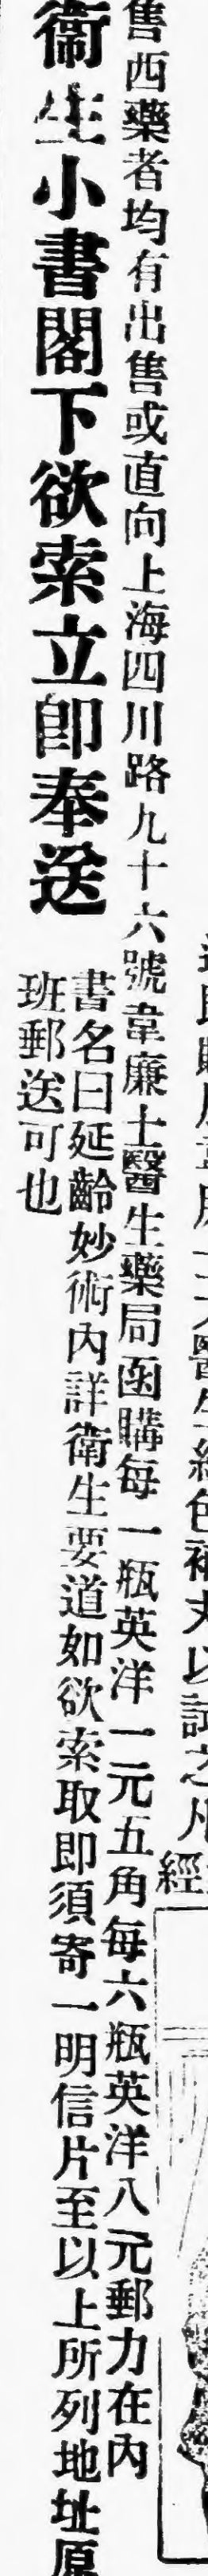 醫生紅色補丸以試之凡經
售西藥者均有出售或直向上海四川路九十六號韋廉士醫生藥局函購每一瓶英洋一元五角每六瓶英洋八元郵力在內
衞生小書閣下欲索立卽奉送
書名曰延齡妙術內詳衛生要道如欲索取即須寄一明信片至以上所列地址原
班郵送可也